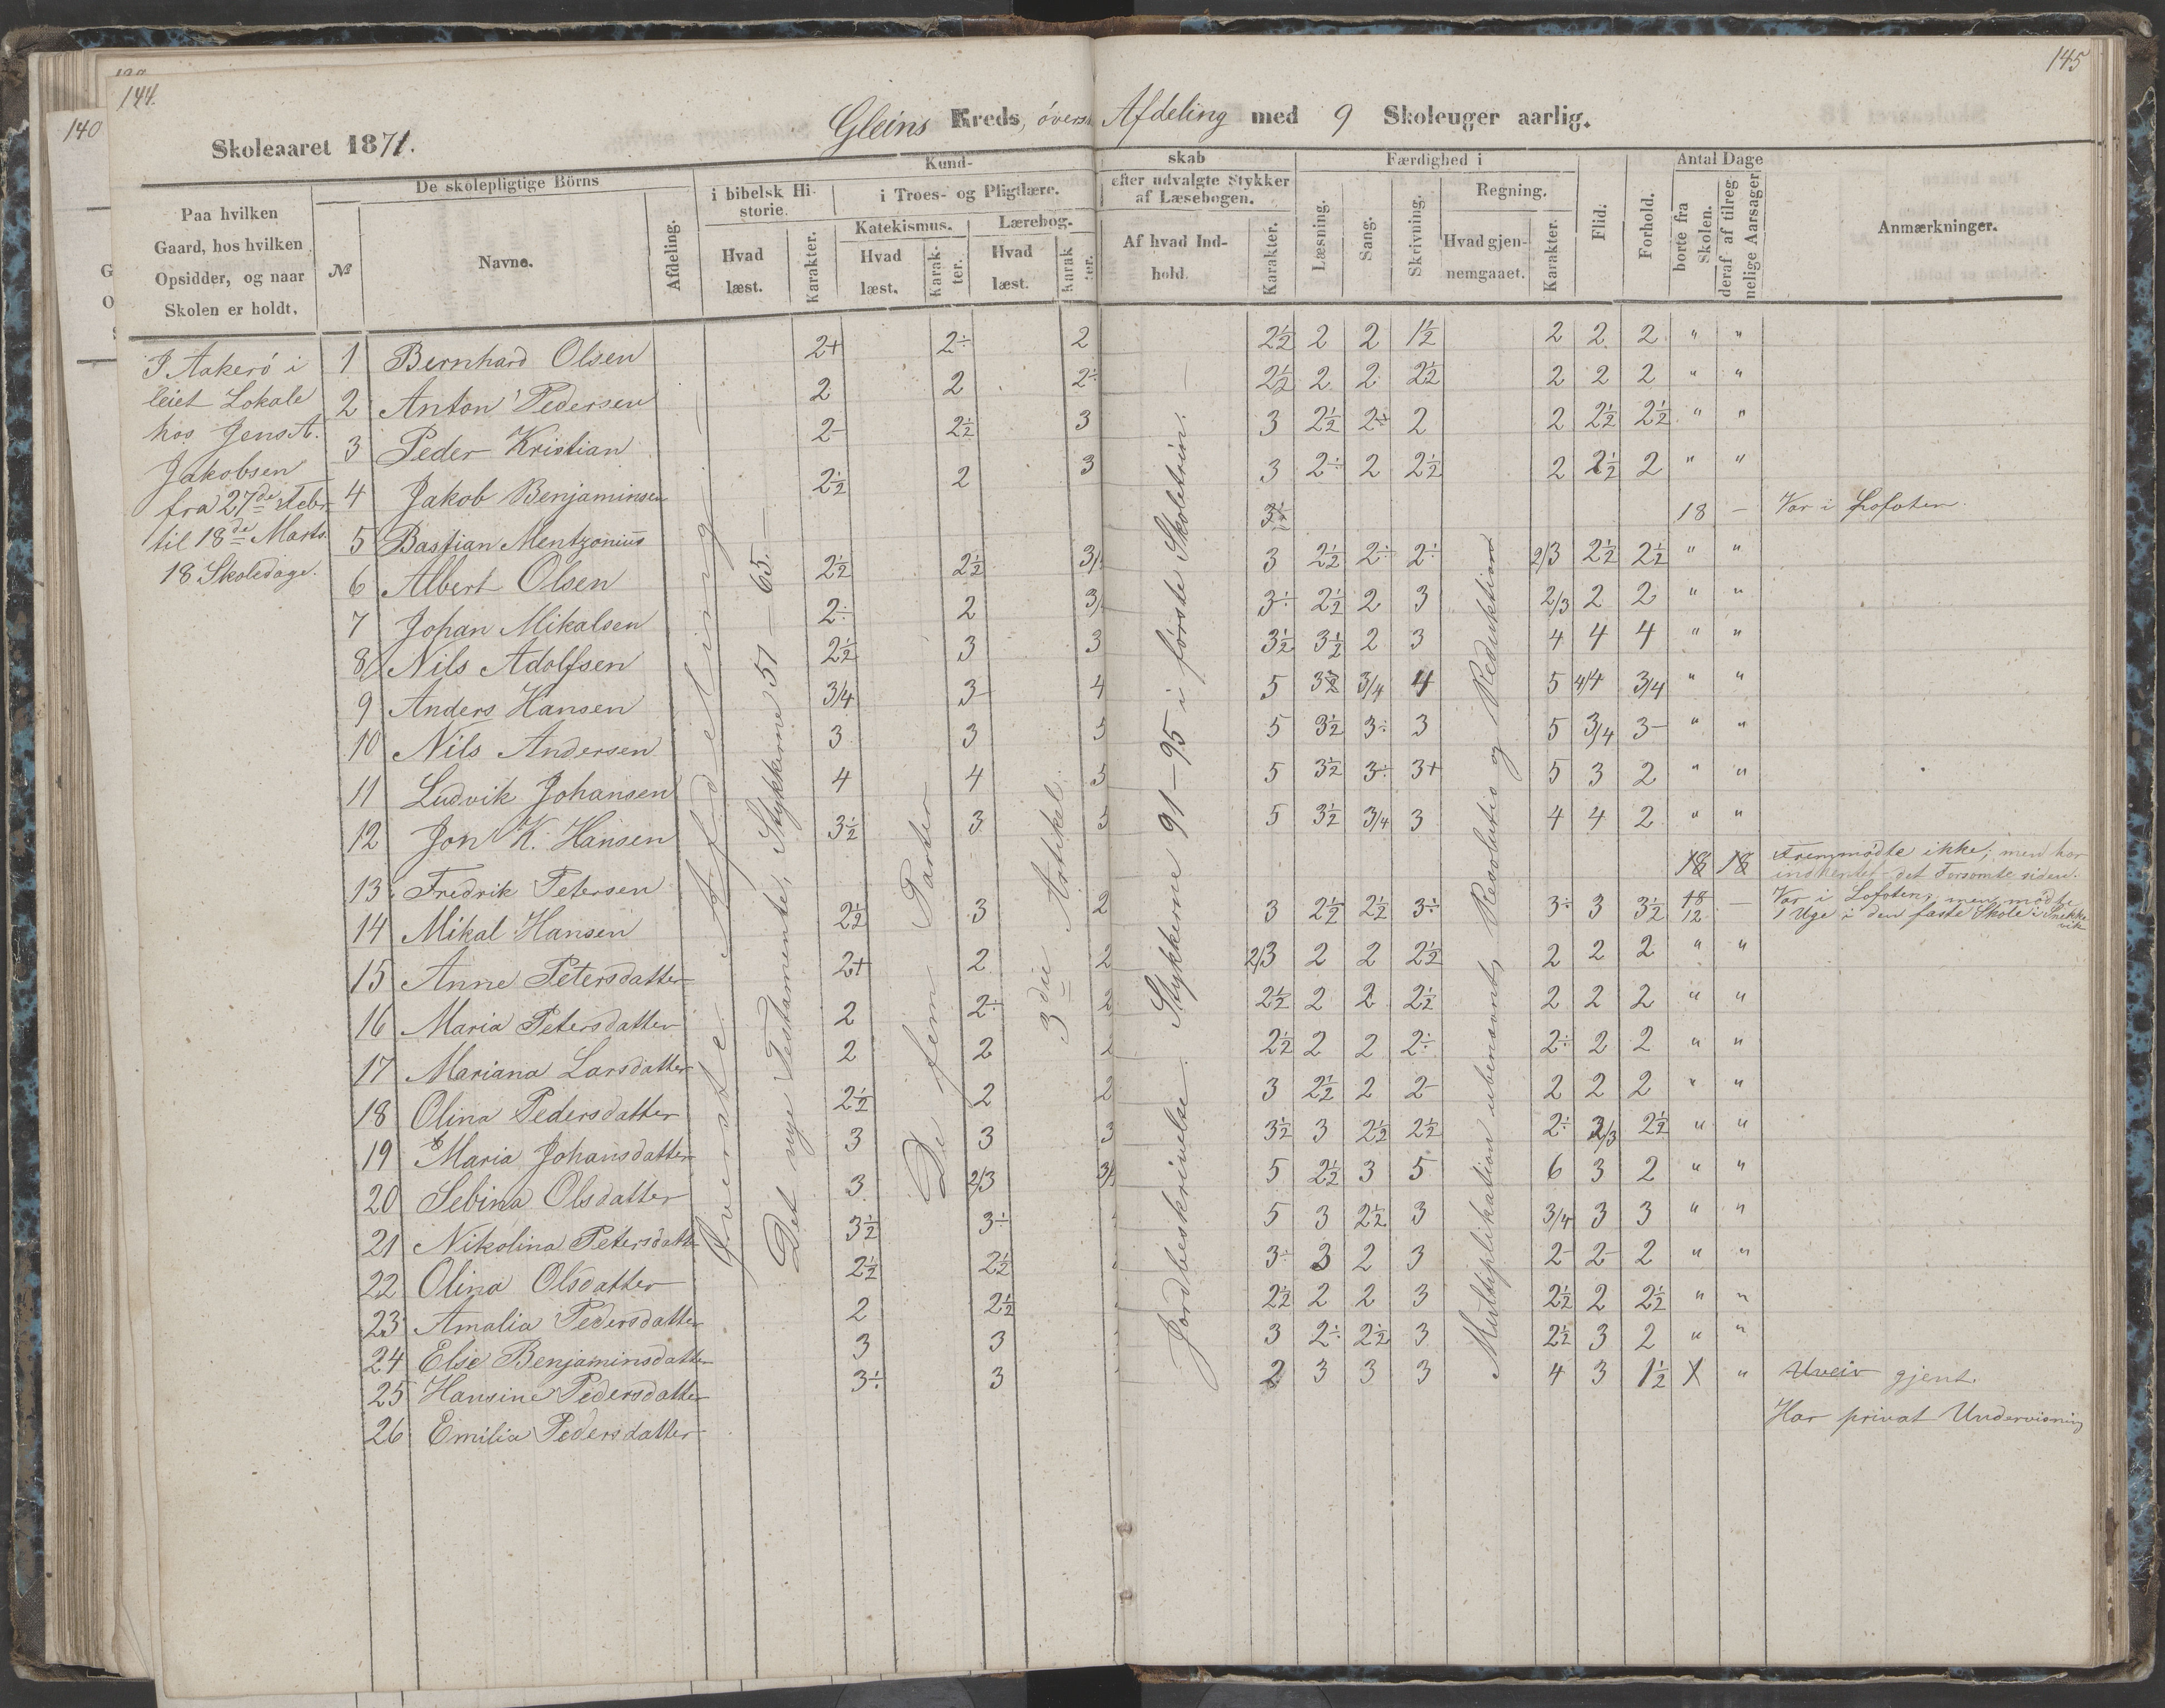 144.
140
Skoleaaret 1871.
Gleins Kreds, øverst
De skolepligtige Börns
Kund-
Paa hvilken
Gaard, hos hvilken
Opsidder, og naar
Skolen er holdt.
№
Navne.
Afdeling.
i bibelsk Hi-
storie.
i Troes- og Pligtlære.
Katekismus.
Lærebog.
Hvad
læst.
Karakter.
Hvad
læst.
Karak-
ter.
Hvad
læst.
Karak
ter.
I Aakerö i
leiet Lokale
hos Jens A.
Jakobsen
fra 27de Febr.
til 18de Marts.
18 Skoledage.
1 Bernhard Olsen 2+ 2÷ 2
2 Anton Pedersen 2 2 2÷
3 Peder Kristian 2- 2½ 3
4 Jakob Benjaminsen 2½ 2 3
5 Bastian Mentzonius
6 Albert Olsen 2½ 2½ 3/
7 Johan Mikalsen 2÷ 2 3/
8 Nils Adolfsen 2½ 3 3
9 Anders Hansen 3/4 3- 4
10 Nils Andersen 3 3 3
11 Ludvik Johansen 4 4 3
12 Jon K. Hansen 3½ 3 3
13 Fredrik Petersen
14 Mikal Hansen 2½ 3 2
15 Anne Petersdatter 2+ 2 2
16 Maria Petersdatter 2 2÷ 2
17 Mariana Larsdatter 2 2 2
18 Olina Pedersdatter 2½ 2 2
19 Maria Johansdatter 3 3 3
20 Sebina Olsdatter 3 2/3 3/
21 Nikolina Petersdatter 3½ 3÷
22 Olina Olsdatter 2½ 2½
23 Amalia Pedersdatter 2 2½
24 Else Benjaminsdatter 3 3
25 Hansine Pedersdatter 3÷ 3
26 Emilia Pedersdatter
Øverste Afdeling
Det nye Testamente, Stykkerne 51 — 65.
De fem Parter
3die Artikel.
145
Afdeling med 9 Skoleuger aarlig.
skab
efter udvalgte Stykker
af Læsebogen.
Af hvad Ind-
hold.
Karakter.
Færdighed i
Læsning.
Sang.
Skrivning.
Regning.
Hvad gjen-
nemgaaet.
Karakter.
Flid.
Forhold.
Antal Dage
borte fra
Skolen.
deraf af tilreg-
nelige Aarsager.
Anmærkninger.
2½ 2 2 1½ 2 2 2 " "
2½ 2 2 2½ 2 2 2 " "
3 2½ 2÷ 2 2 2½ 2½ " "
3 2÷ 2 2½ 2 2½ 2 " "
3½ 18 — Var i Lofoten
3 2½ 2÷ 2÷ 2/3 2½ 2½ " "
3÷ 2½ 2 3 2/3 2 2 " "
3½ 3½ 2 3 4 4 4 " "
5 3½ 3/4 4 5 4/4 3/4 " "
5 3½ 3÷ 3 5 3/4 3- " "
5 3½ 3÷ 3+ 5 3 2 " "
5 3½ 3/4 3 4 4 2 " "
18 18 Fremmödte ikke; men har
indhentet det Forsömte siden.
3 2½ 2½ 3÷ 3÷ 3 3½ 18 — Var i Lofoten, men mödte
12 1 Uge i den faste Skole i Snekke
vik
2/3 2 2 2½ 2 2 2 " "
2½ 2 2 2½ 2 2 2 " "
2½ 2 2 2÷ 2÷ 2 2 " "
3 2½ 2 2- 2 2 2 " "
3½ 3 2½ 2½ 2÷ 2/3 2½ " "
5 2½ 3 5 6 3 2 " "
5 3 2½ 3 3/4 3 3 " "
3÷ 3 2 3 2- 2- 2 " "
2½ 2 2 3 2½ 2 2½ " "
3 2÷ 2½ 3 2½ 3 2 " "
2 3 3 3 4 3 1½ 1 " Uveir gjent.
Har privat Undervisning
Jordbeskrivelse. Stykkerne 91 — 95 i første Skoletrin.
Multiplikation ubenævnt, Resolutio og Reduktion